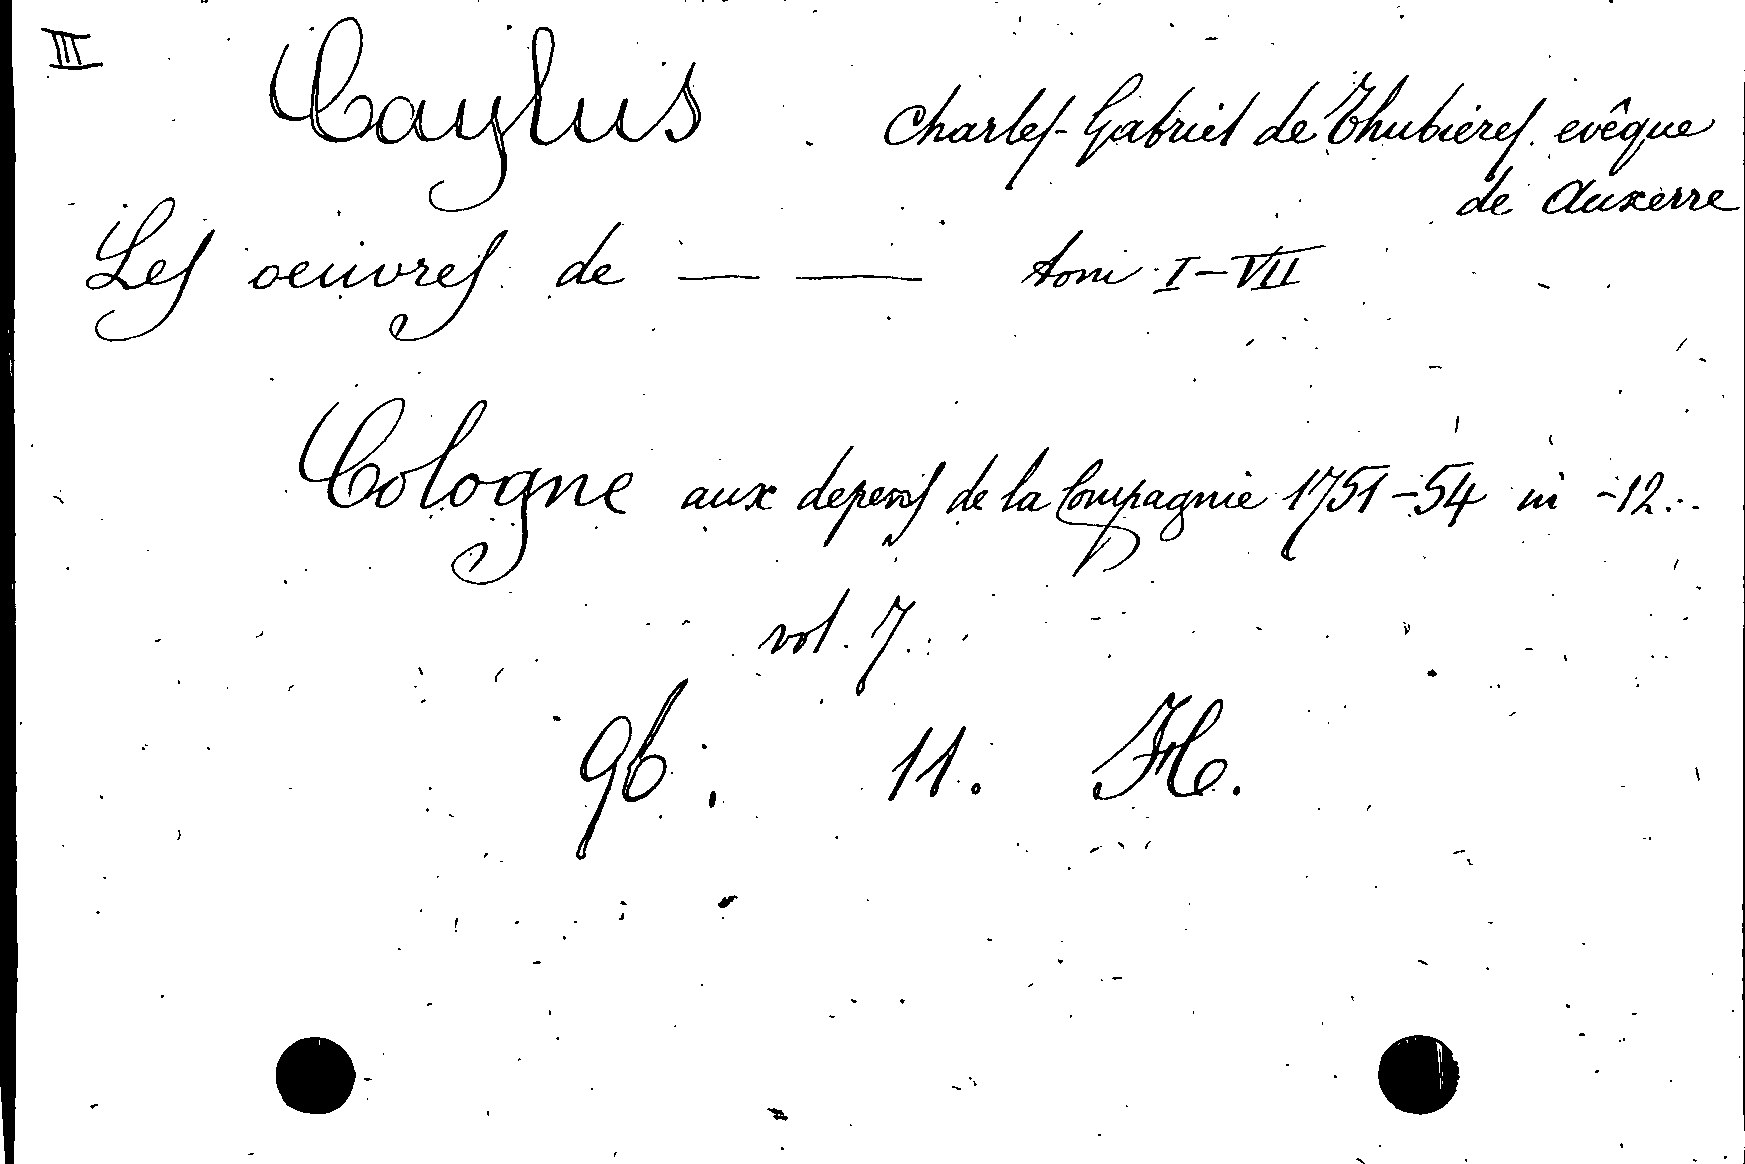 III
Caylus Charles-Gabriel de Thubières evêque
de Auxerre
Les oeuvres de — — tomi I-VII
Cologne aux depens de la Compagnie 1751-54 in -12.
vol. 7.
96. 11. H.